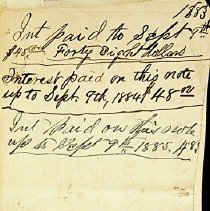 1883
Int paid to Sept 9th
$48.00 Forty Eight Dollars
Interest paid on this note
up to Sept. 9th, 1884, 48 00
Int Paid on this note
up to Sept 9th 1885, 48